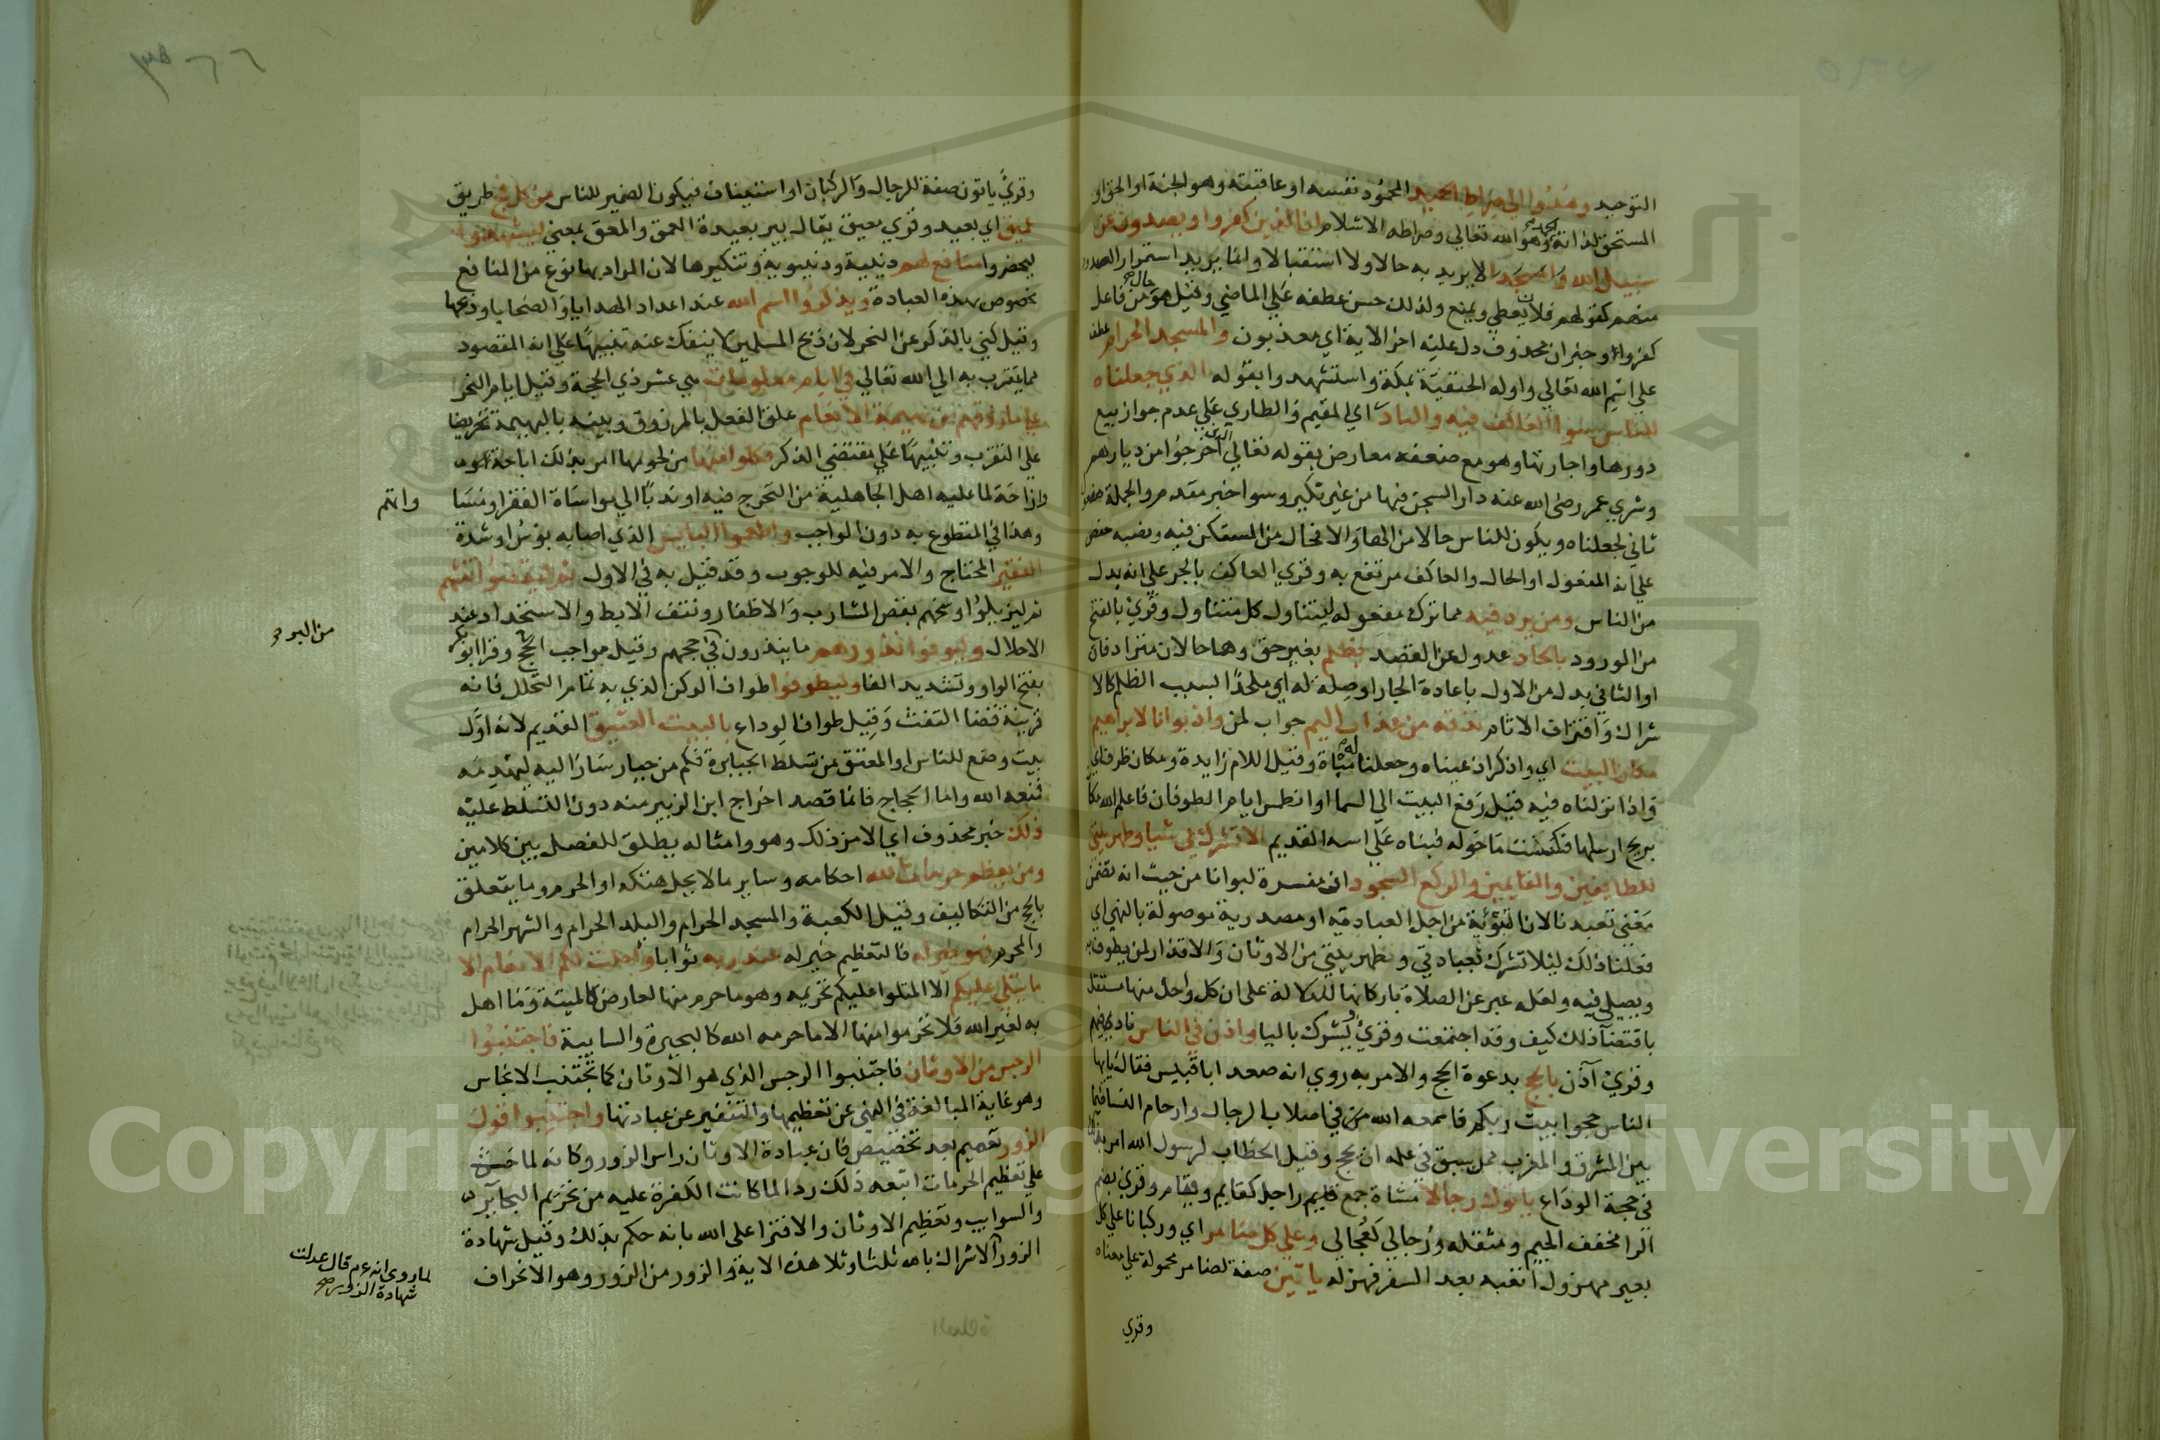 التوحيد وهدوا الي صراط الحميد المحمود نفسه او عاقبته وهو الجنة او الحق او
المستحق لذاته الحمد وهو الله تعالي وصراطه الاسلام ان الذين كفروا ويصدون عن
سبيل الله لا يريد به حالا ولا استقبالا وانما يريد استمرار الصدود
منهم كقولهم فلان يعطي ويمنع ولذلك حسن عطفه علي الماضي وقيل هو حال من فاعل
كفروا وخبر ان محذوف دل عليه اخر الاية اي معذبون والمسجد الحرام عطف
علي اسم الله تعالي واوله الحنفية بمكة واستشهدوا بقوله الذي جعلناه
للناس سوا العاكف فيه والباد اي المقيم والطاري علي عدم جواز بيع
دورها واجارتها وهو مع ضعفه معارض بقوله تعالي الذين اخرجوا من ديارهم
وشري عمر رضي الله عنه دار السجن فيها من غير نكير وسوا خبر مقدم والجملة مفعول
ثاني لجعلناه ويكون للناس حالا من الها والا فحال من المستكن فيه ونصبه حفص
علي انه المفعول او الحال والعاكف مرتفع به وقري العاكف بالجر علي انه بدل
من الناس ومن يرد فيه مما ترك مفعوله ليتناول كل متناول وقري بالفتح
من الورود بالحاد عدول عن القصد بظلم بغير حق وهما حالان مترادفان
او الثاني بدل من الاول باعادة الجار او صلة له اي ملحدا بسبب الظلم كالا
شراك واقتراف الاثام نذقه من عذاب اليم جواب لمن واذ بوانا لابراهيم
مكان البيت اي واذكر اذ عيناه وجعلنا له مباة وقيل اللام زايدة ومكان ظرف اي
واذ انزلناه فيه قيل رفع البيت الي السما او انطس ايام الطوفان فاعلم الله مكا
بريح ارسلها فكنست ما حوله فبناه علي اسه القديم الا تشرك بي شيا وطهر بيتي
للطايفين والقايمين والركع السجود ان مفسرة لبوانا من حيث انه تضمن
معني تعبدنا لان التبوئة من اجل العبادة او مصدرية موصولة بالنهي اي
فعلنا ذلك ليلا تشرك بعبادتي وتطهر بيتي من الاوثان والاقذار لمن يطوف به
ويصلي فيه ولعله عبر عن الصلاة باركانها للدلالة علي ان كل واحد منها مستقل
باقتضا ذلك كيف وقد اجتمعت وقري يشرك باليا واذن في الناس ناد فيهم
وقري آذن بالحج بدعوة الحج والامر به روي انه صعد ابا قبيس فقال يا ايها
الناس حجوا بيت ربكم فاسمعه الله من في اصلاب الرجال وارحام النسا فيما
بين المشرق والمغرب ممن سبق في علمه ان يحج وقيل الخطاب لرسول الله امر بذلك
في حجة الوداع ياتوك رجالا مشاة جمع راجل كقايم وقيام وقري بضم
الرا مخفف الجيم ومثقله ورجالي كعجالي وعلي كل ضامر اي وركبانا علي كل
بعير مهزول اتعبه بعد السفر فهزله ياتين صفة لضامر محمولة علي معناه
وقري
وقري ياتون صفة للرجال والركبان او استيناف فيكون الضمير للناس من كل فج طريق
عميق اي بعيد وقري معيق يقال بير بعيدة العمق والمعق بمعني ليشهدوا
ليحضروا منافع لهم دينية ودنيوية وتنكيرها لان المراد بها نوع من المنافع
مخصوص بهذه العبادة ويذكروا اسم الله عند اعداد الهدايا والضحايا وذبحها
وقيل كني بالذكر عن النحر لان ذبح المسلمين لا ينفك عنه تنبيها علي انه المقصود
مما يتقرب به الي الله تعالي في ايام معلومات هي عشر ذي الحجة وقيل ايام النحر
علي ما رزقهم من بهيمة الانعام علق الفعل بالمرزوق وبينه بالبهيمة تحريضا
علي التقرب وتنبيها علي مقتضي الذكر فكلوا منها من لحومها امر بذلك اباحة
وازاحة لما عليه اهل الجاهلية من التحرج فيه او ندبا الي مواساة الفقرا ومسا
واتهم
وهذا في المتطوع به دون الواجب واطعموا البايس الذي اصابه بؤس او شدة
الفقير المحتاج والامر فيه للوجوب وقد قيل به في الاول ثم ليقضوا تفثهم
ثم ليزيلوا وسخهم بقص الشارب والاظفار ونتف الابط والاستحداد عند
الاحلال وليوفوا نذورهم ما ينذرون من البر في حجهم وقيل مواجب الحج وقرا ابو بكر
بفتح الواو وتشديد الفا وليطوفوا طواف الركن الذي به تمام التحلل فانه
قرينة قضا التفث وقيل طواف الوداع بالبيت العتيق القديم لانه اول
بيت وضع للناس او المعتق من تسلط الجبابرة فكم من جبار سار اليه ليهدمه
فمنعه الله واما الحجاج فانما قصد اخراج ابن الزبير منه دون التسلط عليه
ذلك خبر محذوف اي الامر ذلك وهو وامثاله يطلق للفصل بين كلامين
ومن يعظم حرمات الله احكامه وساير ما لا يحل هتكه او الحرم وما يتعلق
بالحج من التكاليف وقيل الكعبة والمسجد الحرام والبلد الحرام والشهر الحرام
والمحرم فهو خير له فالتعظيم خير له عند ربه ثوابا واحلت لكم الانعام الا
ما يتلي عليكم الا المتلو عليكم تحريمه وهو ما حرم منها لعارض كالميتة وما اهل
به لغير الله فلا تحرموا منها الا ما حرمه الله كالبحيرة والسايبة فاجتنبوا
الرجس من الاوثان فاجتنبوا الرجس الذي هو الاوثان كما تجتنب الانجاس
وهو غاية المبالغة في النهي عن تعظيمها والتنفير عن عبادتها واجتنبوا قول
الزور تعميم بعد تخصيص فان عبادة الاوثان راس الزور وكانه لما حث
علي تعظيم الحرمات اتبعه ذلك ردا لما كانت الكفرة عليه من تحريم البحاير
والسوايب وتعظيم الاوثان والافترا علي الله بانه حكم بذلك وقيل شهادة
الزور لما روي انه عم قال عدلت شهادة الزور الاشراك بالله ثلثا وتلا هذه الاية والزور من الزور وهو الانحراف
Copyright © King Saud University